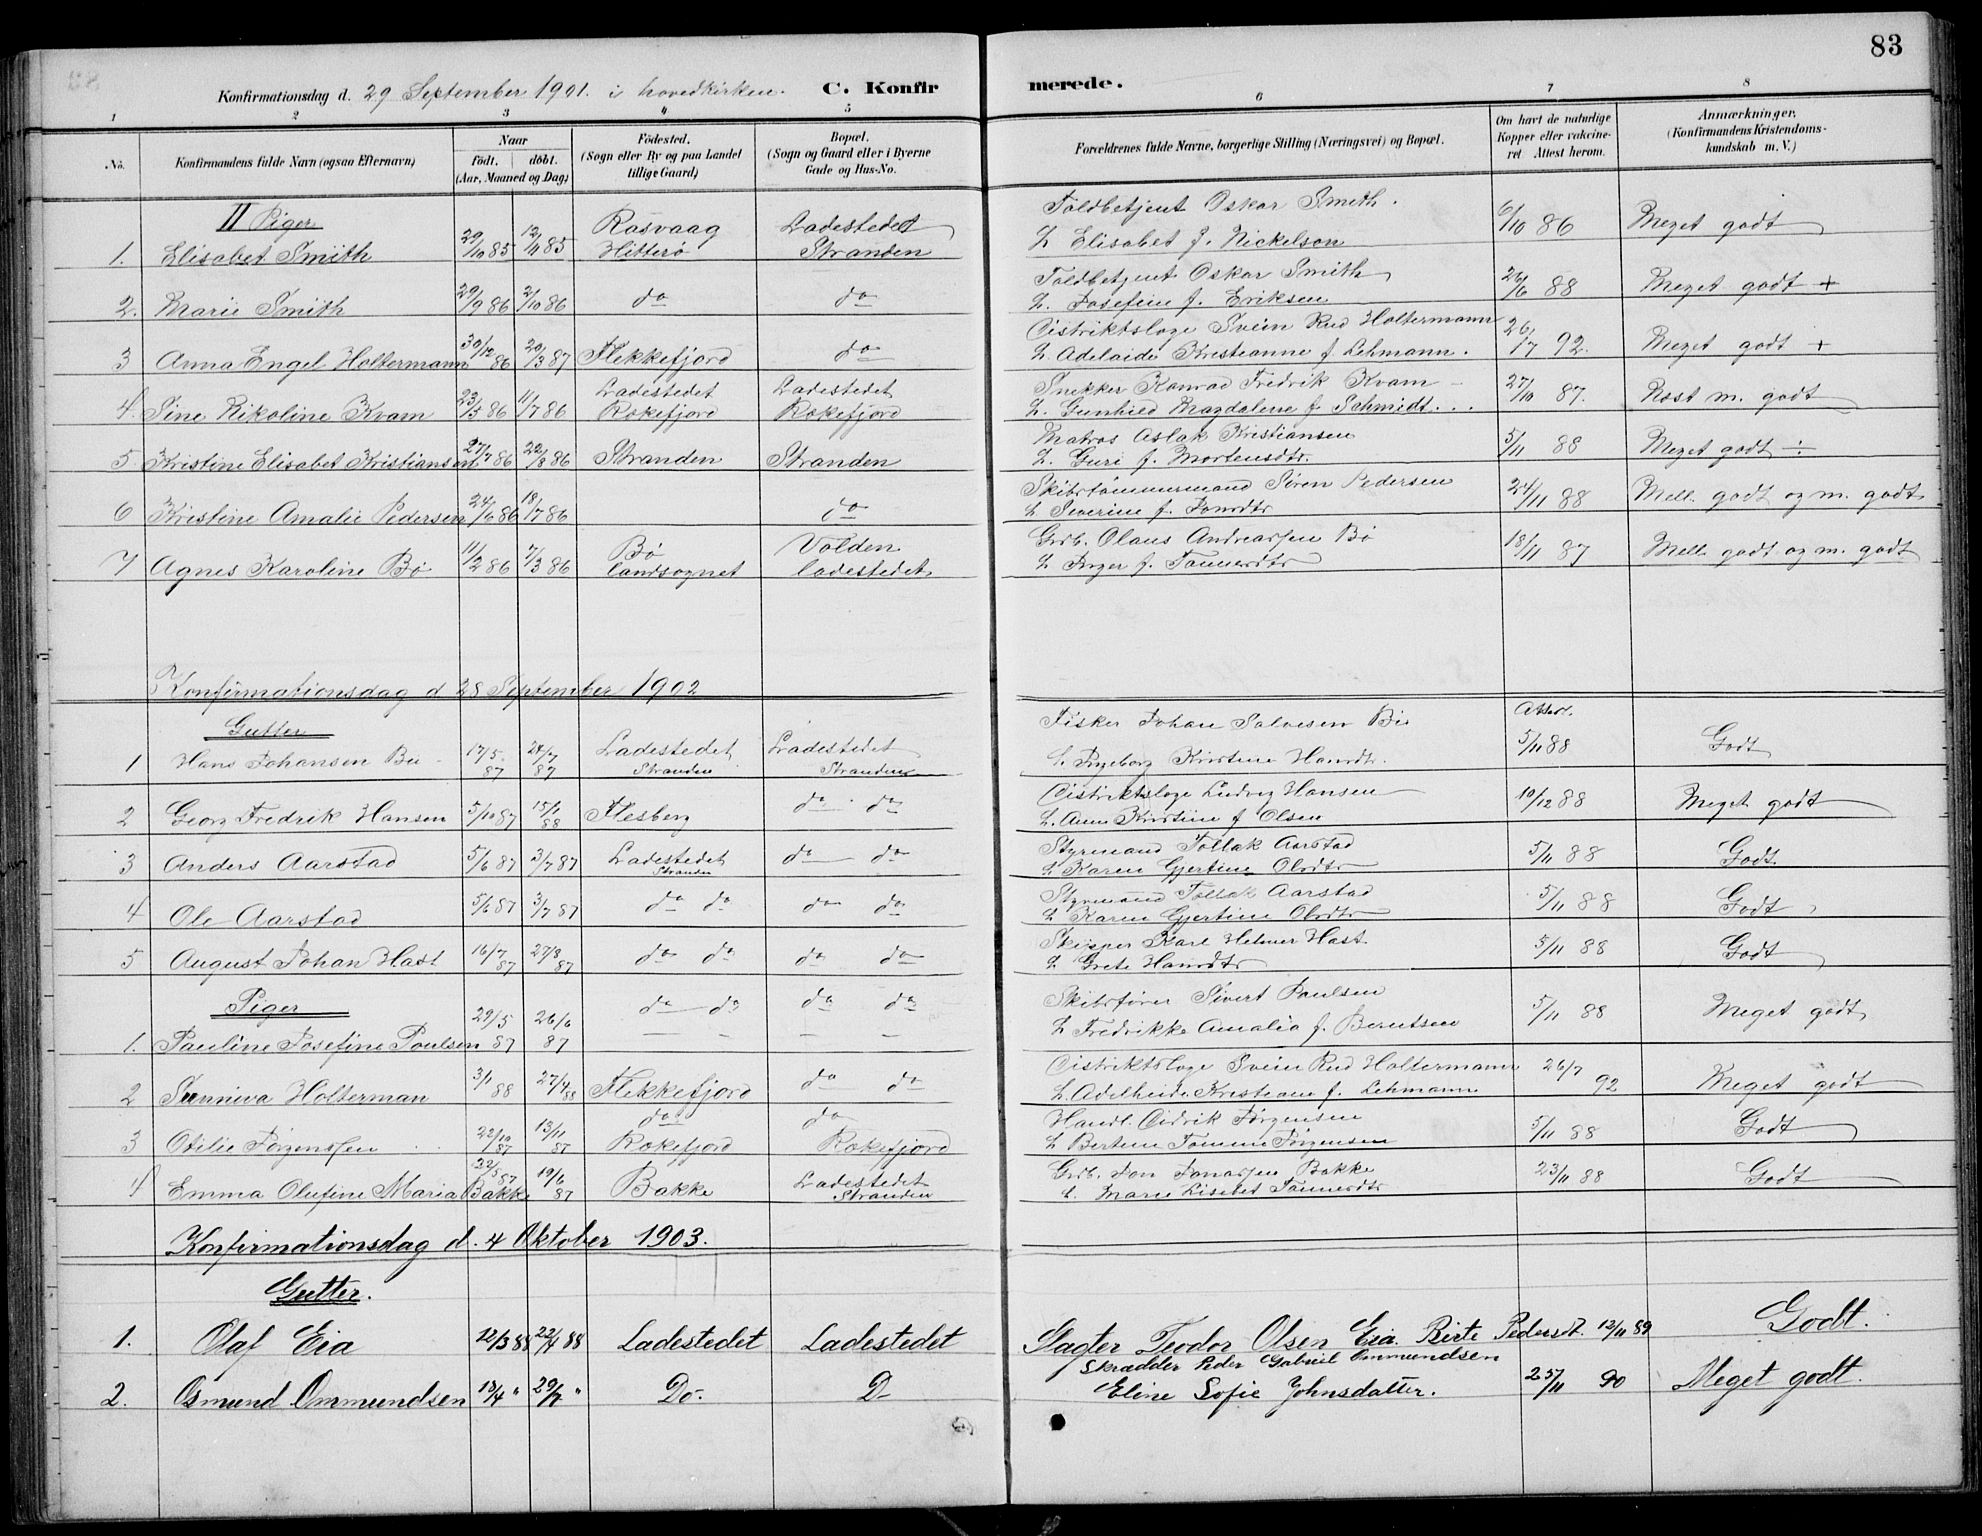 83
Konfirmationsdag d. 29 September 1901. i hovedkirken. C. Konfirmerede.
1 2 3 4 5 6 7 8
No. Konfirmandens fulde Navn (ogsaa Efternavn) Naar født. døbt. (Aar, Maaned og Dag) Fødested. (Sogn eller By og paa Landet tillige Gaard) Bopæl. (Sogn og Gaard eller i Byerne Gade og Hus-No. Forældrenes fulde Navne, borgerlige Stilling (Næringsvei) og Bopæl. Om havt de naturlige Kopper eller vakcineret. Attest herom. Anmærkninger, (Konfirmandens Kristendomskundskab m. V.)
II Piger Rasvaag Ladestedet Toldbetjent Oskar Smith.
1. Elisabet Smith 29/10 85 12/11 85 Hitterø Stranden & Elisabet f. Nickelson 6/10 86 Meget godt
Toldbetjent Oskar Smith
2. Marie Smith 29/9 86 2/10 86 do do & Josefine f. Eriksen 26/6 88 Meget godt +
Distriktslæge Svein Rud Holtermann
3 Anna Engel Holtermann 30/12 86 20/3 87 Flekkefjord do & Adelaide Kristianne f. Lehmann. 26/7 92. Meget godt +
Ladestedet Ladestedet Snekker Konrad Fredrik Kvam
4. Sine Rikoline Kvam 23/5 86 11/7 86 Rokefjord Rokefjord & Gunhild Magdalene f. Schmidt. 27/10 87. Næst m. godt
Matros Aslak Kristiansen
5. Kristine Elisabet Kristiansen 27/7 86 22/8 86 Stranden Stranden & Guri f. Mortensdtr. 5/11 88 Meget godt ÷
Skibstømmermand Søren Pedersen
6 Kristine Amalie Pedersen 24/6 86 18/7 86 do & Severine f. Jonsdtr 24/11 88 Mell. godt og m. godt
Bø Volden Grdb. Olaus Andreassen Bø
7 Agnes Karoline Bø 11/2 86 7/3 86 landsognet ladestedet & Inger f. Tønnesdtr 18/11 87 Mell. godt og m. godt
Konfirmationsdag d 28 September 1902
Gutter Fisker Johan Salvesen Bø Attest.
1 Hans Johansen Bø 17/5 87 24/7 87 Ladestedet Stranden Ladestedet Stranden & Ingeborg Kristine Hansdtr. 5/11 88 Godt
Distriktslæge Ludvig Hansen
2 Georg Fredrik Hansen 5/10 87 15/1 88 Flesberg do do & Anna Kristine f Olsen 10/12 88 Meget godt
Styrmand Tollak Aarstad
3 Anders Aarstad 5/6 87 3/7 87 Ladestedet Stranden do do & Karen Gjertine Olsdtr 5/11 88 Godt
Styrmand Tollak Aarstad
4 Ole Aarstad 5/6 87 3/7 87 do do do do & Karen Gjertine Olsdtr 5/11 88 Godt
Skipper Karl Helmer Hast
5 August Johan Hast 16/7 87 27/8 87 do do do do & Grete Hansdtr 5/11 88 Godt
Piger do do do do Skibsfører Sivert Paulsen
1. Pauline Josefine Poulsen 29/5 87 26/6 87 & Fredrikke Amalia f. Berntsen 5/11 88 Meget godt
Distriktslæge Svein Rud Holtermann
2 Sunniva Holterman 3/1 88 27/4 88 Flekkefjord do do & Adelheide Kristiane f. Lehmann 26/7 92 Meget godt
do do Handl. Didrik Jørgensen
3 Otilie Jørgenssen 22/10 87 13/11 87 Rokefjord Rokefjord & Bertine Tomine Jørgensen 5/11 88 Godt
Grdb. Jon Jonassen Bakke
4 Emma Olufine Maria Bakke 22/5 87 19/6 87 Bakke Ladestedet Stranden & Marie Lisebet Tønnesdtr 23/11 88 Godt
Konfirmationsdag d. 4 Oktober 1903.
Gutter.
1. Olaf Eia 12/3 88 22/4 88 Ladestedet Ladestedet Slagter Teodor Olsen Eia. Birte Pedersdt. 12/11 89 Godt.
Skrædder Peder Gabriel Ommundsen
2. Osmund Ommundsen 18/4 " 29/7 " Do- D- Eline Sofie Johnsdatter. 25/11 90 Meget godt.